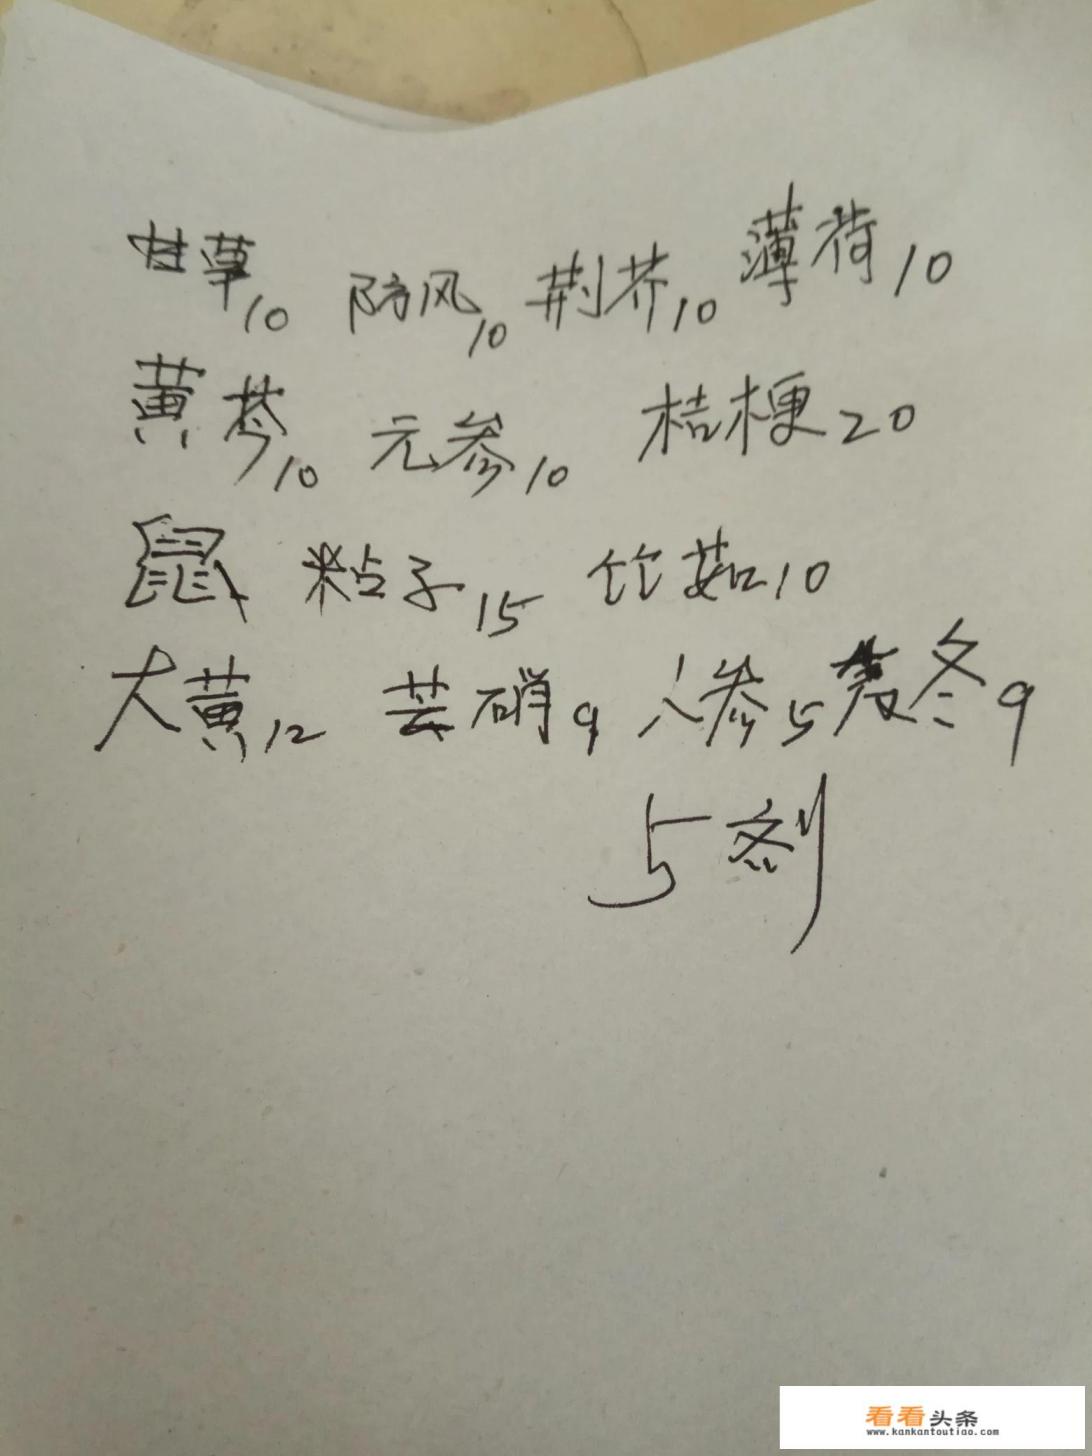 甘草10 防风10 荆芥10 薄荷10
黄芩10 元参10 桔梗20
鼠粘子15 竹茹10
大黄12 芸硝9 人参5 麦冬9
5剂
看看头条
www.kankantoutiao.com